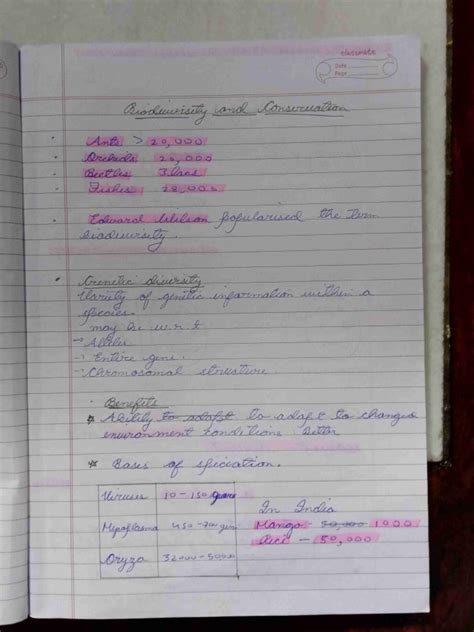 classmate
Date
Page
Biodiversity and Conservation
Ants > 20,000
Orchids 20,000
Beetles 3 lacs
Fishes 28,000
Edward Wilson popularised the term
biodiversity.
Genetic diversity
Variety of genetic information within a
species.
may be w.r.t
→ Alleles
→ Entire gene.
→ Chromosomal structure.
Benefits
Ability to adapt to adapt to changed
environment conditions better
Bases of speciation.
Viruses 10-150 genes
Mycoplasma 450-700 gen
Oryza 32000-5000
In India
Mango - 50,000 1000
Rice - 50,000